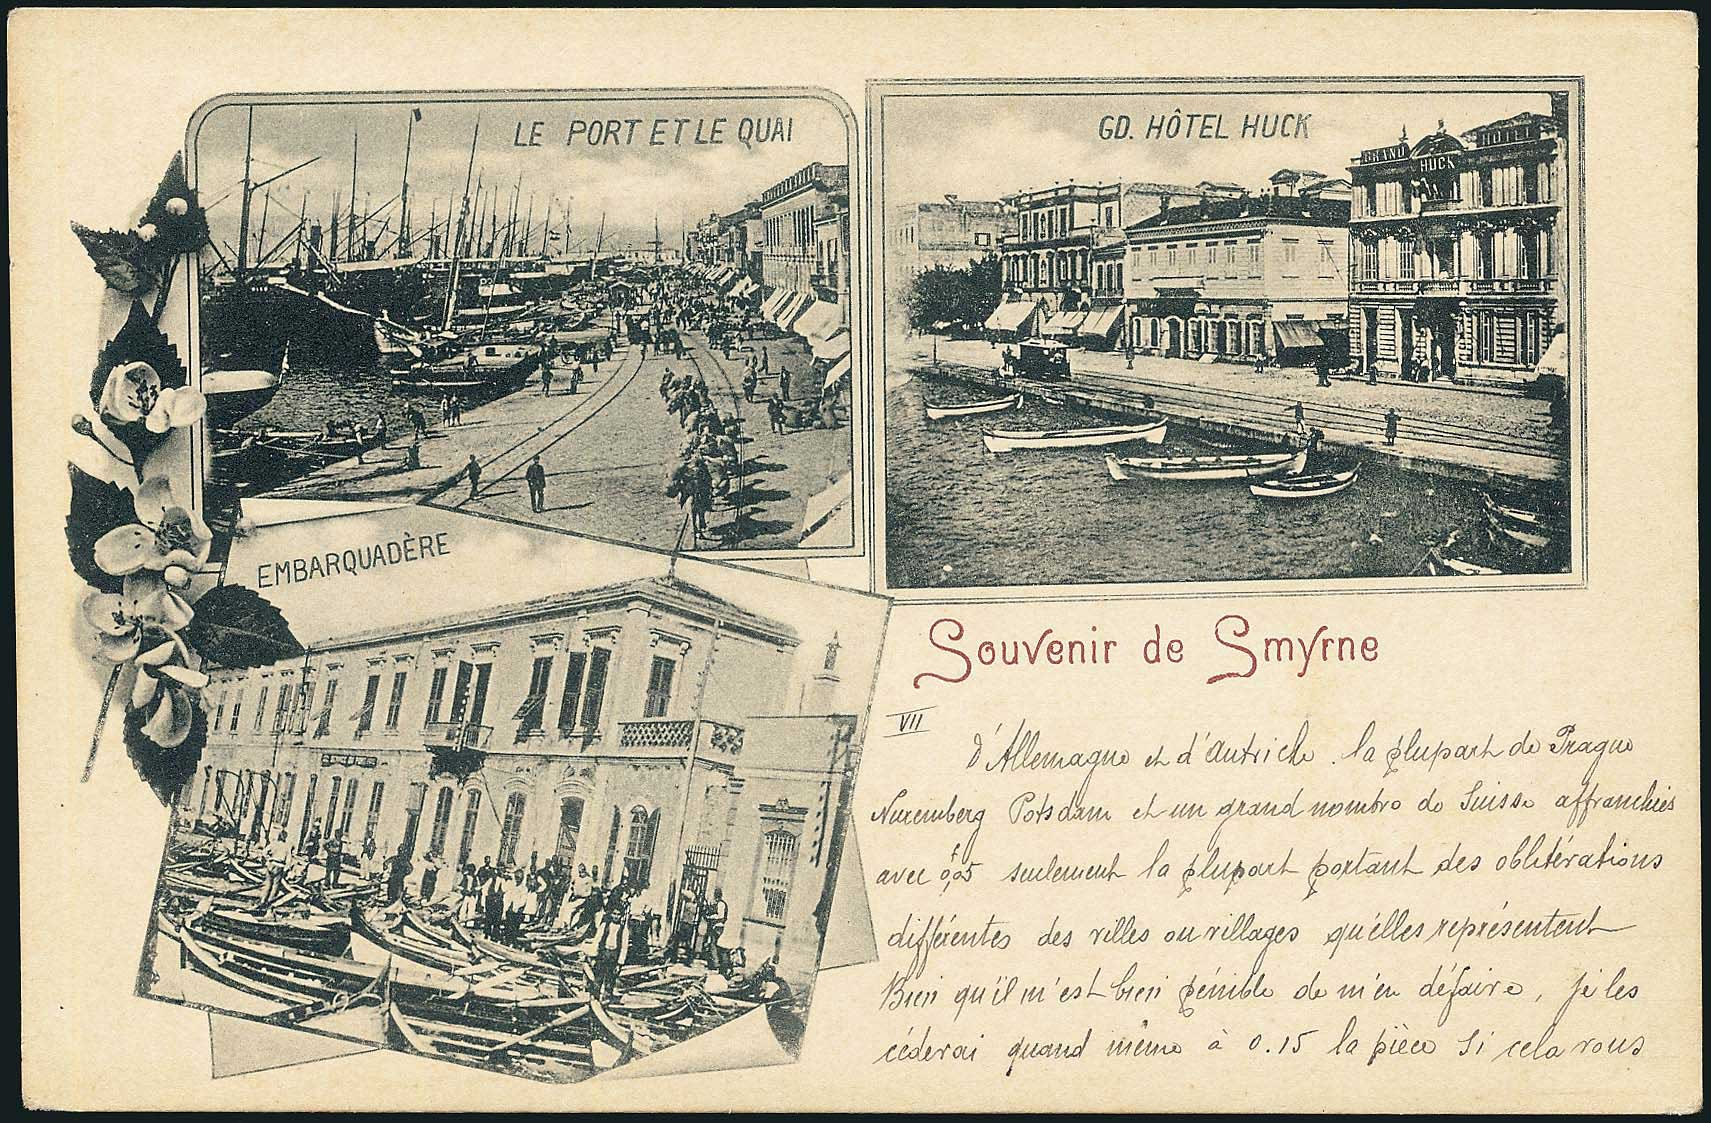 LE PORT ET LE QUAI
GD. HÔTEL HUCK
GRAND HUCK HOTEL
EMBARQUADÈRE
Souvenir de Smyrne
VII
d'Allemagne et d'Autriche. la plupart de Prague
Nuremberg Potsdam et un grand nombre de Suisse affranchies
avec 0,05 seulement la plupart portant des oblitérations
différentes des villes ou villages qu'elles représentent
Bien qu'il m'est bien pénible de m'en défaire, je les
céderai quand même à 0.15 la pièce Si cela vous